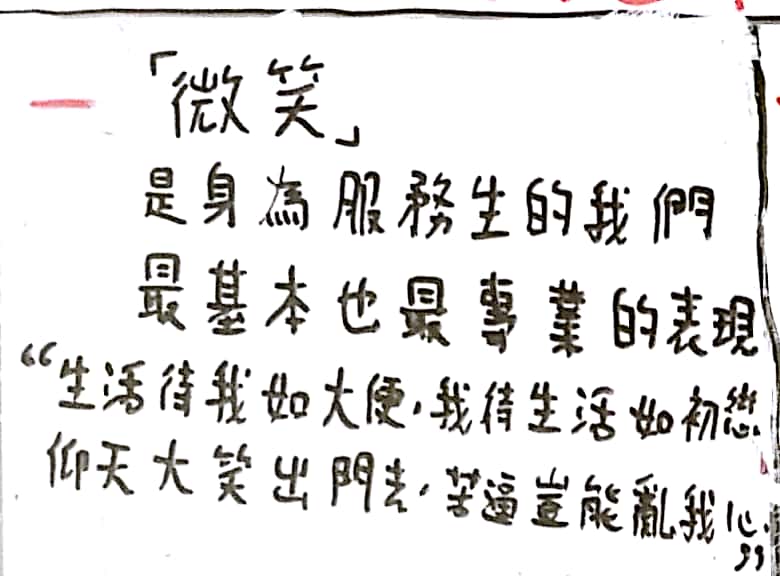 「微笑」
是身為服務生的我們
最基本也最專業的表現
“生活待我如大便,我待生活如初戀
仰天大笑出門去,苦逼豈能亂我心.”